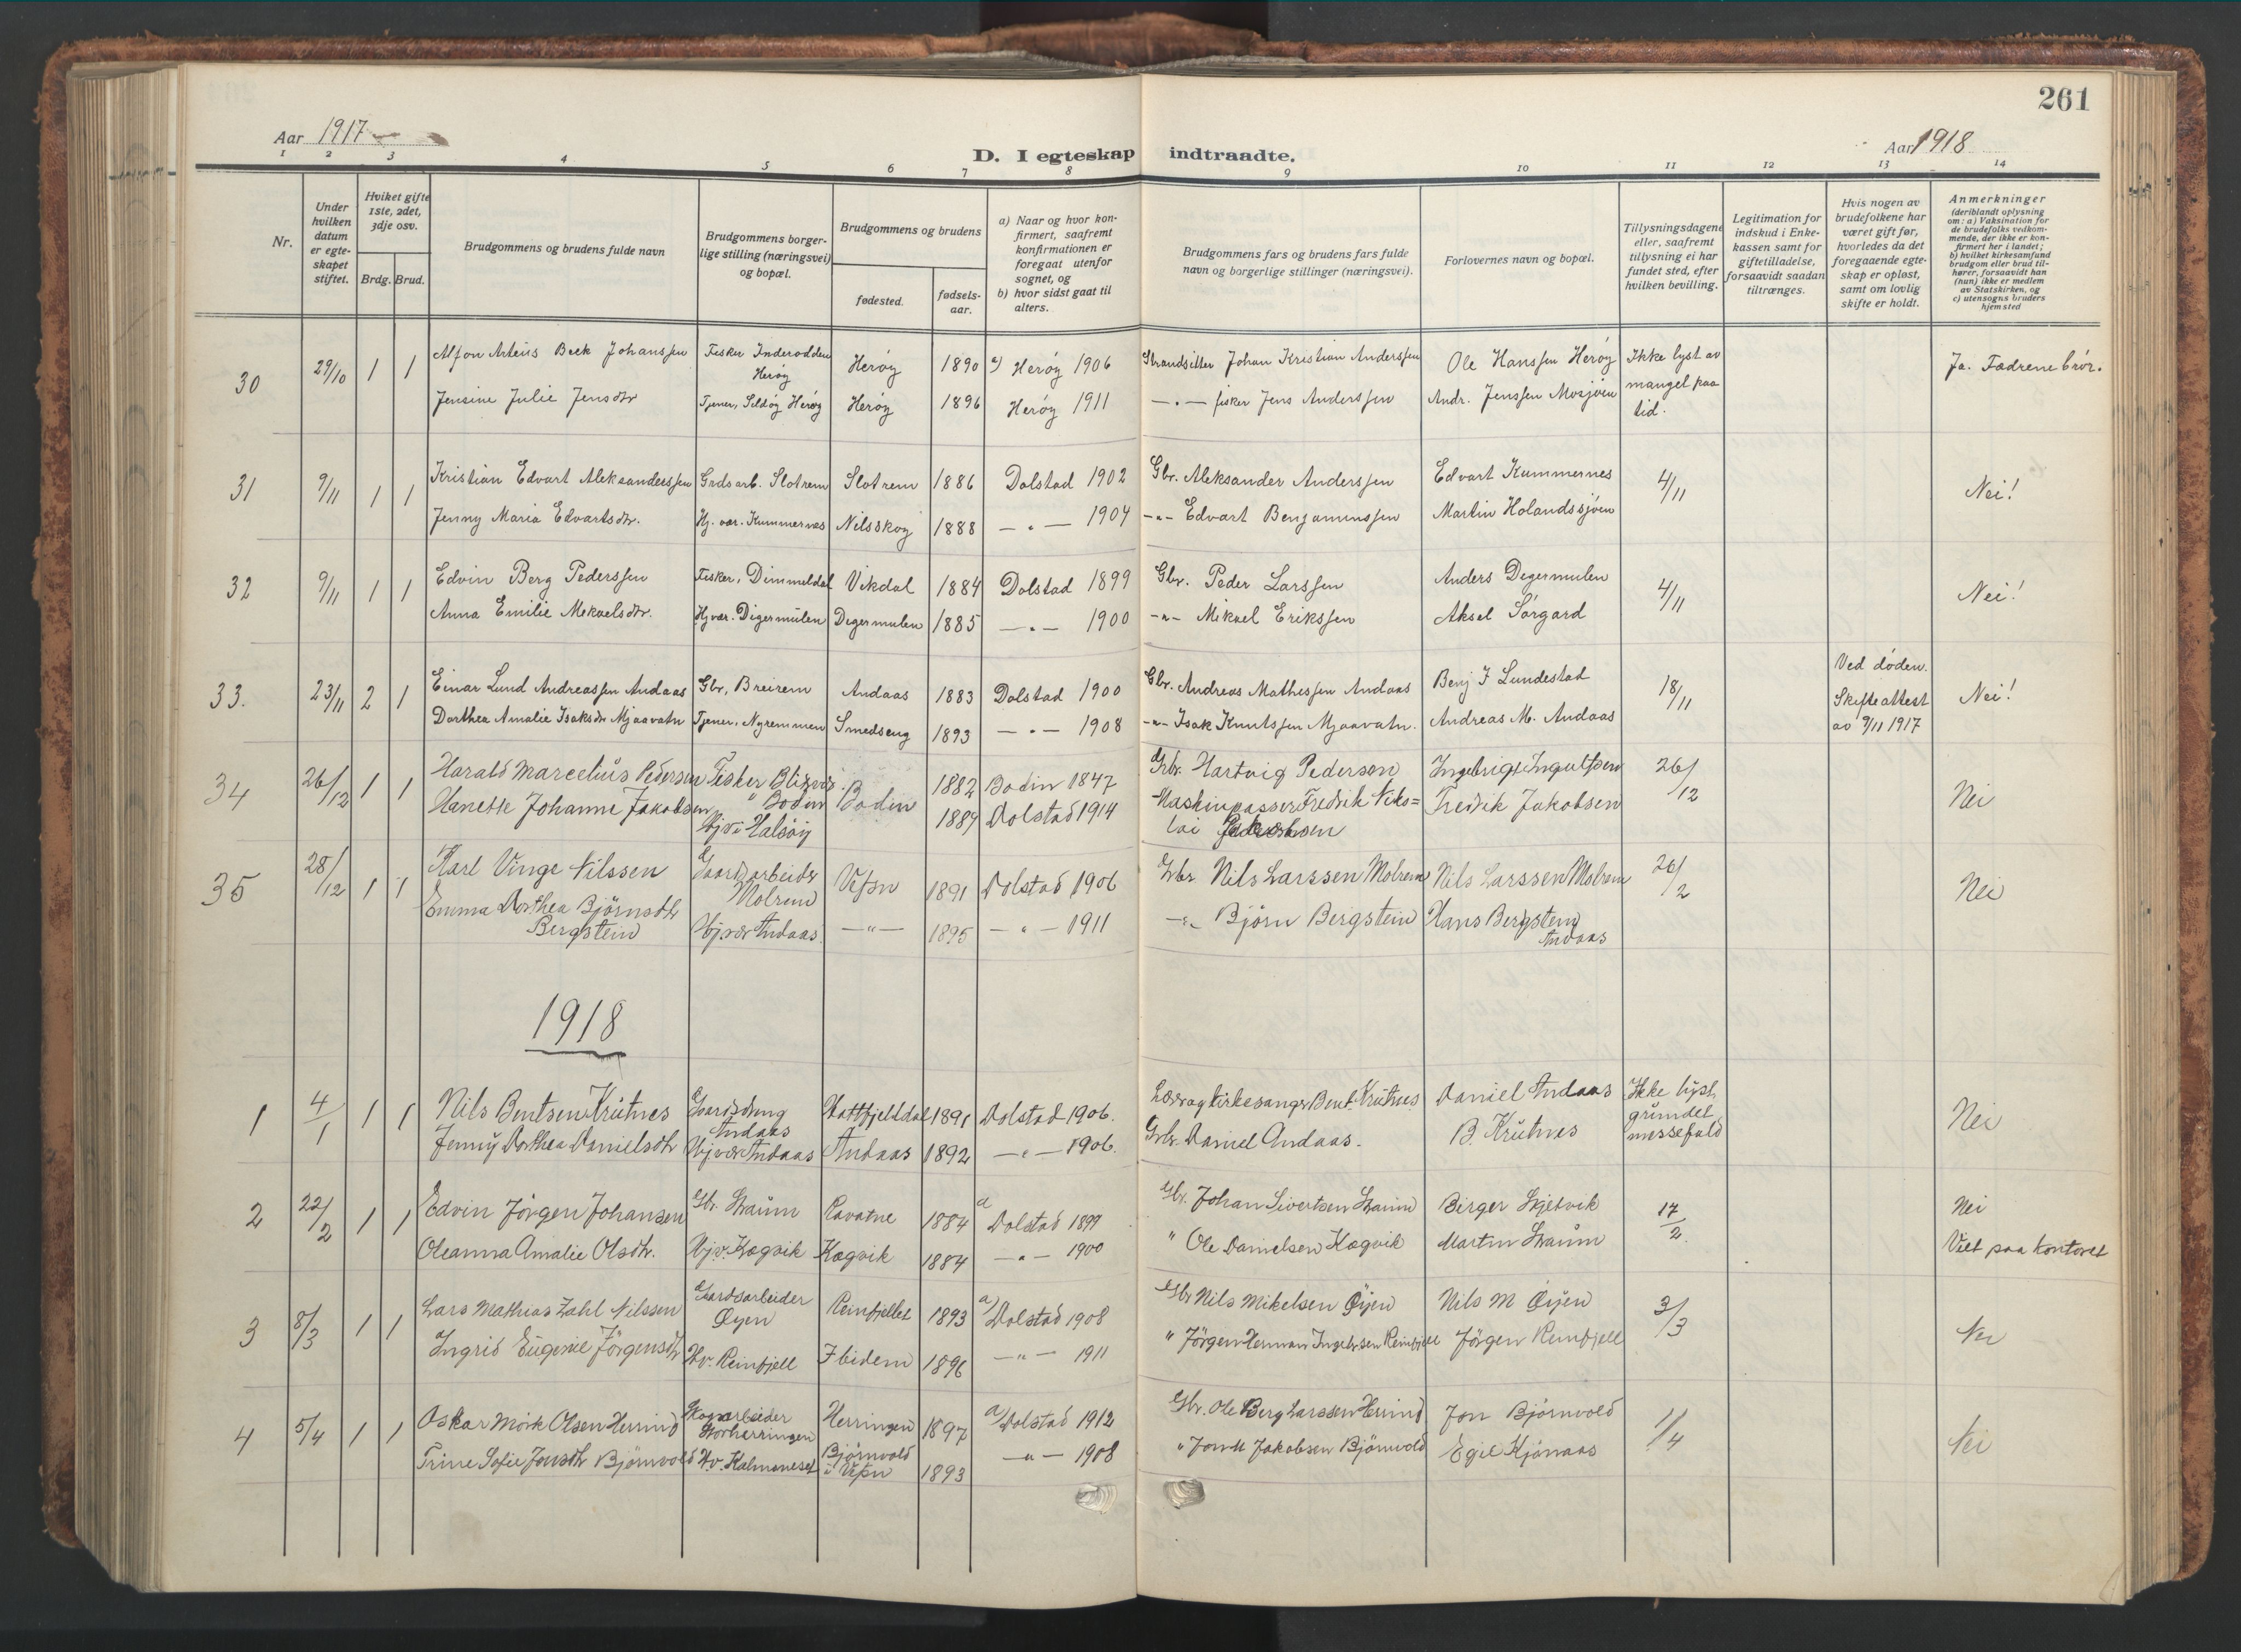 261
Aar 1917
D. I egteskap indtraadte.
Aar 1918
1 2 3 4 5 6 7 8 9 10 11 12 13 14
Nr.
Under hvilken datum er egteskapet stiftet.
Hviket gifte 1ste, 2det, 3dje osv.
Brdg. Brud.
Brudgommens og brudens fulde navn
Brudgommens borgerlige stilling (næringsvei) og bopæl.
Brudgommens og brudens
fødested.
fødselsaar.
a) Naar og hvor konfirmert, saafremt konfirmationen er foregaat utenfor sognet, og
b) hvor sidst gaat til alters.
Brudgommens fars og brudens fars fulde navn og borgerlige stillinger (næringsvei).
Forlovernes navn og bopæl.
Tillysningsdagene eller, saafremt tillysning ei har fundet sted, efter hvilken bevilling.
Legitimation for indskud i Enkekassen samt for giftetilladelse, forsaavidt saadan tiltrænges.
Hvis nogen av brudefolkene har været gift før, hvorledes da det foregaaende egteskap er opløst, samt om lovlig skifte er holdt.
Anmerkninger (deriblandt oplysning om: a) Vaksination for de brudefolks vedkommende, der ikke er konfirmert her i landet; b) hvilket kirkesamfund brudgom eller brud tilhører, forsaavidt han (hun) ikke er medlem av Statskirken, og c) utensogns bruders hjemsted
30 29/10 1 1 Alfon Arteus Beck Johanssen Fisker Inderodden Herøy Herøy 1890 a) Herøy 1906 Strandsitter Johan Kristian Anderssen Ole Hanssen Herøy Ikke lyst av mangel paa tid. Ja. Fædrene brør.
Jensine Julie Jensdtr Tjener, Seldøy Herøy Herøy 1896 Herøy 1911 — " — fisker Jens Anderssen Andr. Jenssen Mosjøen
31 9/11 1 1 Kristian Edvart Aleksanderssen Grdsarb. Slotrem Slotrem 1886 Dolstad 1902 Gbr. Aleksander Anderssen Edvart Kummernes 4/11 Nei!
Jenny Maria Edvartsdtr. Hj. vær. Kummernes Nilsskog 1888 — " — 1904 -"- Edvart Benjaminssen Martin Holandssjøen
32 9/11 1 1 Edvin Berg Pederssen Fisker, Dimmeldal Vikdal 1884 Dolstad 1899 Gbr. Peder Larssen Anders Degermulen 4/11 Nei!
Anna Emilie Mekaelsdtr. Hj vær. Digermulen Degermulen 1885 — " — 1900 -"- Mikael Erikssen Aksel Sørgard
33. 23/11 2 1 Einar Lund Andreassen Andaas Gbr, Breirem Andaas 1883 Dolstad 1900 Gbr. Andreas Mathissen Andaas Benj J Lundestad 18/11 Ved døden. Skifteattest av 9/11 1917 Nei!
Dorthea Amalie Isaksdtr Mjaavatn Tjener, Nyremmen Smedseng 1893 — " — 1908 -"- Isak Knutssen Mjaavatn. Andreas M. Andaas
34 26/12 1 1 Harald Marcelius Pedersen Fisker Bodin Bodin 1882 Bodin 1847 Gbr. Hartvig Pedersen 26/12 Nei
Hanette Johanne Jakobsen Hjv i Halsøy 1889 Dolstad 1914 Maskinpasser Fredrik Nikolai Fredrik Jakobsen
35 28/12 1 1 Karl Vinge Nilssen Gaardsarbeider Molrem Vefsn 1891 Dolstad 1906 Gbr. Nils Larssen Molrem Nils Larssen Molrem 26/2 Nei
Emma Dorthea Bjørnsdtr Bergstein Hjvær Andaas — " — 1895 — " — 1911 -"- Bjørn Bergstein Hans Bergstein Andaas
1918
1 4/1 1 1 Nils Bentsen Krutnes Gaardsdreng Andaas Hatfjelldal 1891 Dolstad 1906. Lærer og kirkesanger Bent Krutnes Daniel Andaas Ikke lyst grundet messefald Nei
Jenny Dorthea Danielsdtr Hjvær Andaas Andaas 1892 — " — 1906. Gbr. Daniel Andaas. B. Krutnes
2 22/2 1 1 Edvin Jørgen Johansen Gbr. Straum Ravatne 1884 a Dolstad 1899 Gbr. Johan Sivertsen Straum Birger Skjelvik 17/2 Nei
Oleanna Amalie Olsdtr. Hjv. Kogvik Kogvik 1884 — " — 1900 " Ole Danielsen Kogvik Martin Straum Viet paa kontoret
3 8/3 1 1 Lars Mathias Zahl Nilssen Gaardsarbeider Øyen Reinfjellet 1893 a) Dolstad 1908 Gbr Nils Mikelsen Øyen Nils M Øyen 3/3 Nei
Ingrid Eugenie Jörgensdtr Hv. Reinfjell Ibidem 1896 — " — 1911 " Jörgen Herman Ingebrsen Reinfjell Jörgen Reinfjell
4 5/4 1 1 Oskar Mørk Olsen Herring Skogarbeider Storherringen Herringen 1897 a) Dolstad 1912 Gbr. Ole Berg Larssen Herring Jon Bjørnvold 1/4 Nei
Trine Sofie Jonsdtr Bjørnvold Hv. Kalmoneset Bjørnvold i Vefsn 1893 — " — 1908 " Jon Jakobsen Bjørnvold Egil Kjønaas